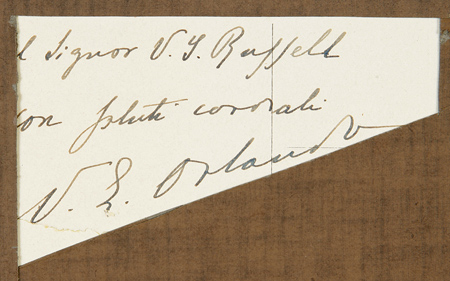 l Signor V. J. Russell
on saluti cordiali
V. E. Orlando